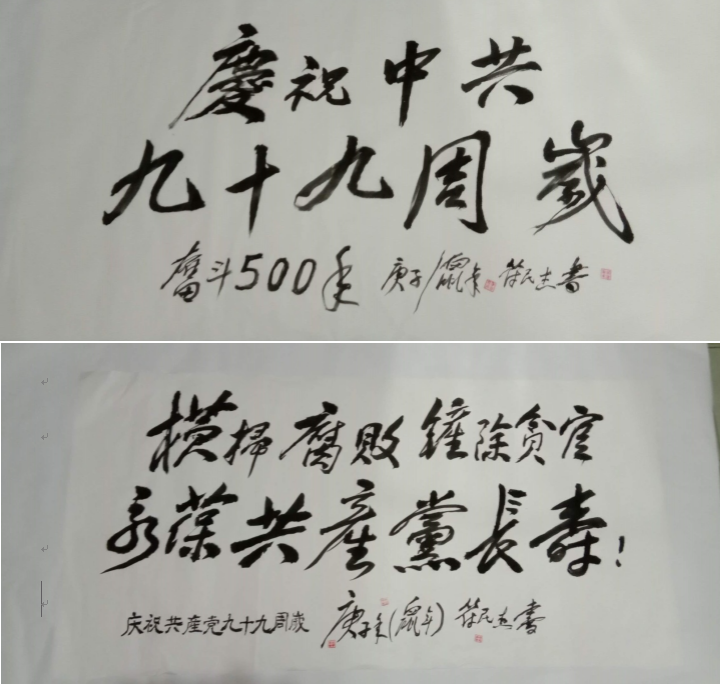 慶祝中共
九十九周歲
奮斗500年
庚子/鼠年 符民志書
橫掃腐败 鏟除貪官
永葆共產黨長壽！
庆祝共產党九十九周歲 庚子年(鼠年) 符民志書